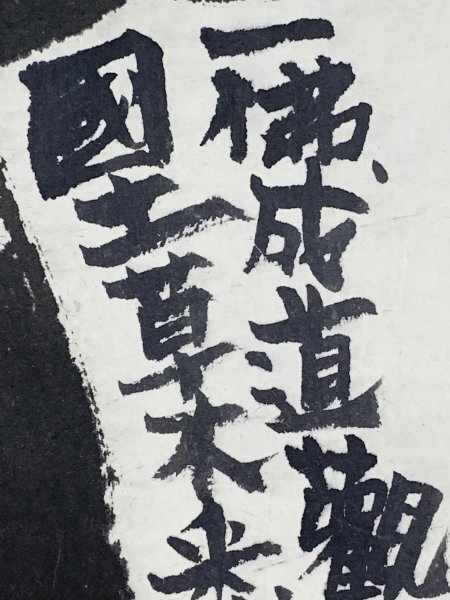 一佛成道觀
國土草木